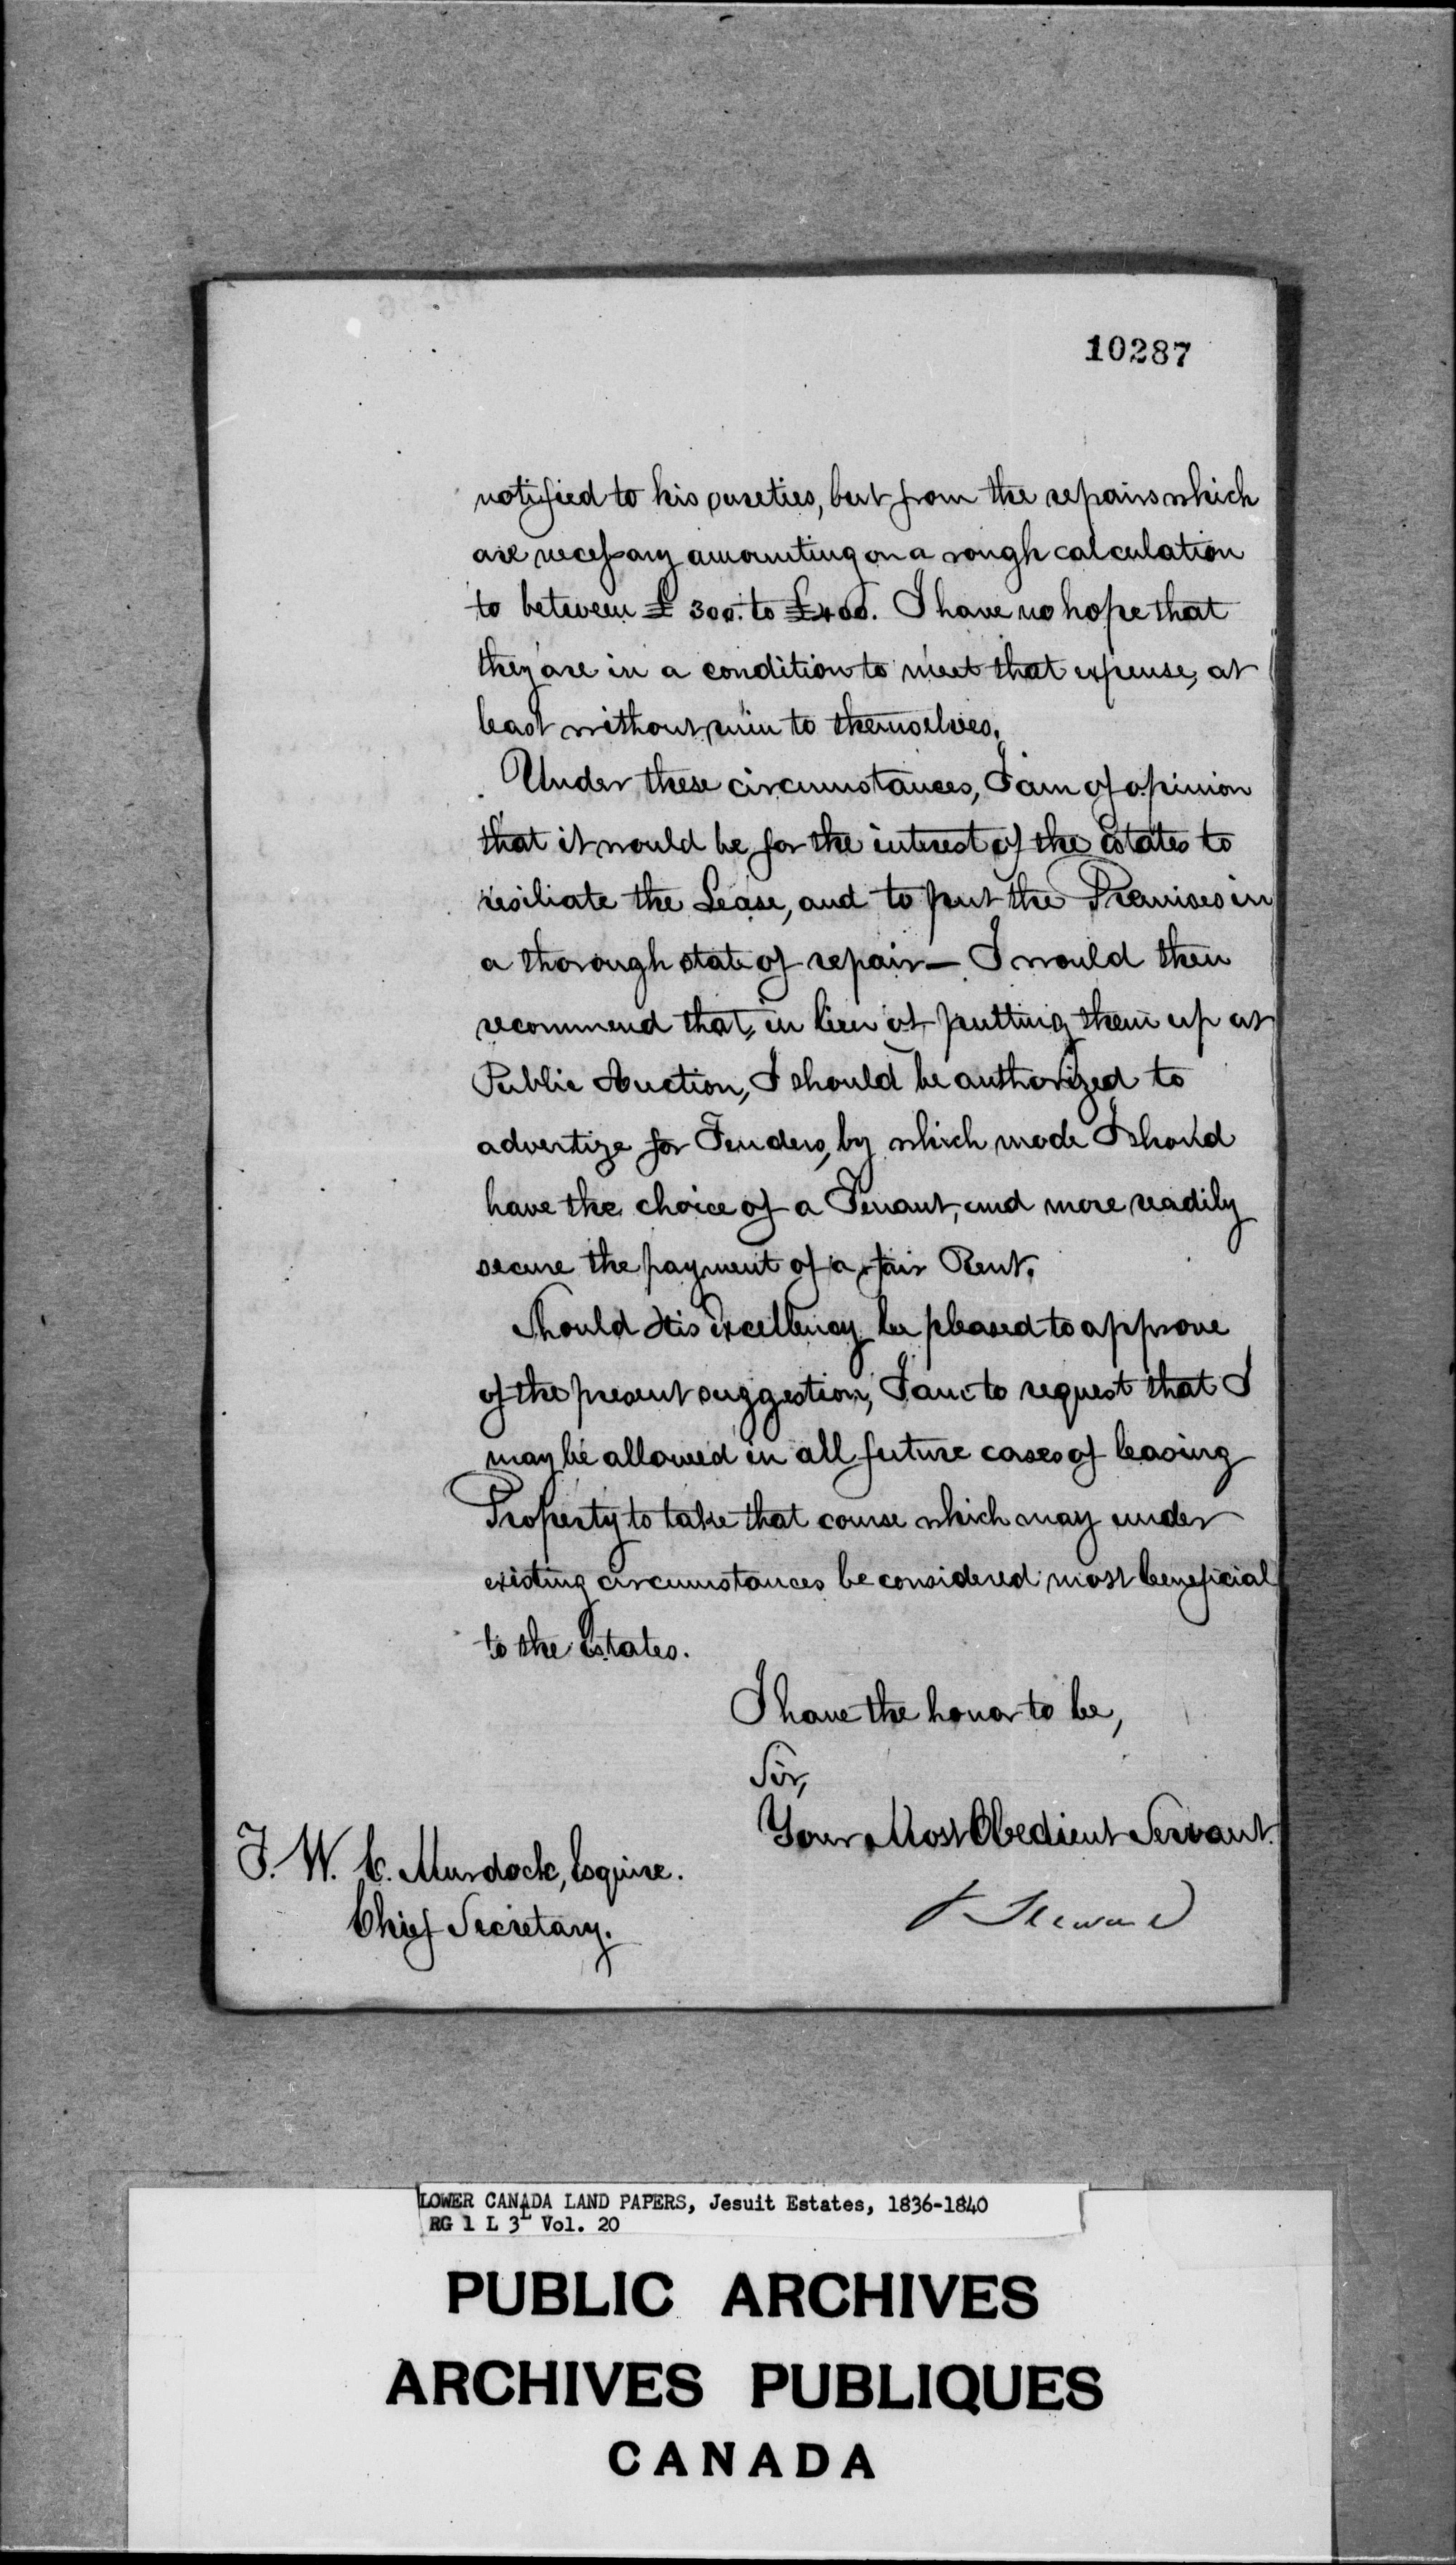 10287
notified to his sureties, but from the repairs which
are necessary amounting on a rough calculation
to between £300. to £400. I have no hope that
they are in a condition to meet that expense, at
least without ruin to themselves.
Under these circumstances, I am of opinion
that it would be for the interest of the Estates to
resiliate the Lease, and to put the Premises in
a thorough state of repair — I would then
recommend that, in lieu of putting them up at
Public Auction, I should be authorized to
advertize for Tenders, by which mode I should
have the choice of a Tenant, and more readily
secure the payment of a fair Rent.
Should His Excellency be pleased to approve
of the present suggestion, I am to request that I
may be allowed in all future cases of leasing
Property to take that course which may under
existing circumstances be considered most beneficial
to the Estates.
I have the honor to be,
Sir,
Your Most Obedient Servant.
T. W. C. Murdock, Esquire.
Chief Secretary.
LOWER CANADA LAND PAPERS, Jesuit Estates, 1836-1840
RG 1 L 3L Vol. 20
PUBLIC ARCHIVES
ARCHIVES PUBLIQUES
CANADA